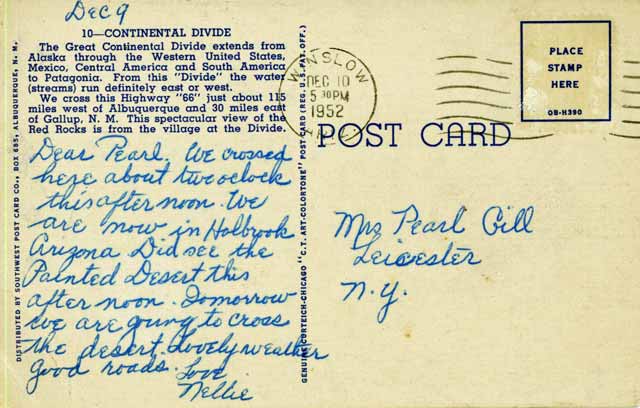 Dec 9
10—CONTINENTAL DIVIDE
The Great Continental Divide extends from
Alaska through the Western United States,
Mexico, Central America and South America
to Patagonia. From this "Divide" the water
(streams) run definitely east or west.
We cross this Highway "66" just about 115
miles west of Albuquerque and 30 miles east
of Gallup, N. M. This spectacular view of the
Red Rocks is from the village at the Divide.
Dear Pearl. We crossed
here about two oclock
this after noon. We
are now in Holbrook
Arizona Did see the
Painted Desert this
after noon. Tomorrow
we are going to cross
the desert. Lovely weather
good roads. Love
Nellie
DISTRIBUTED BY SOUTHWEST POST CARD CO., BOX 685, ALBUQUERQUE, N. M.
GENUINE CURTEICH-CHICAGO "C.T. ART-COLORTONE" POST CARD (REG. U.S. PAT. OFF.)
WINSLOW
DEC 10
5 30 PM
1952
ARIZ.
POST CARD
PLACE
STAMP
HERE
OB-H390
Mrs Pearl Gill
Leicester
N.Y.